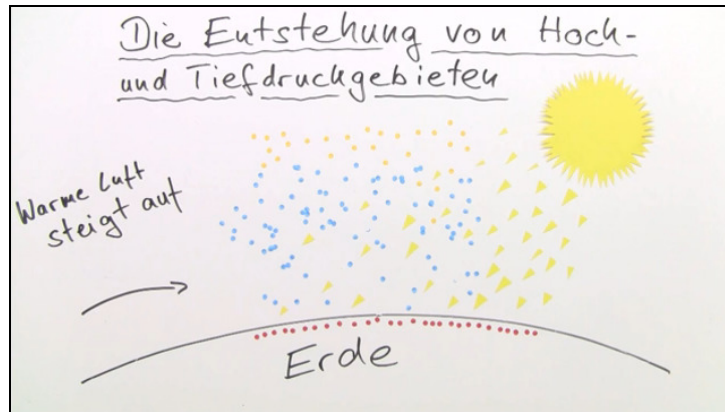 Die Entstehung von Hoch-
und Tiefdruckgebieten
Warme Luft
steigt auf
Erde